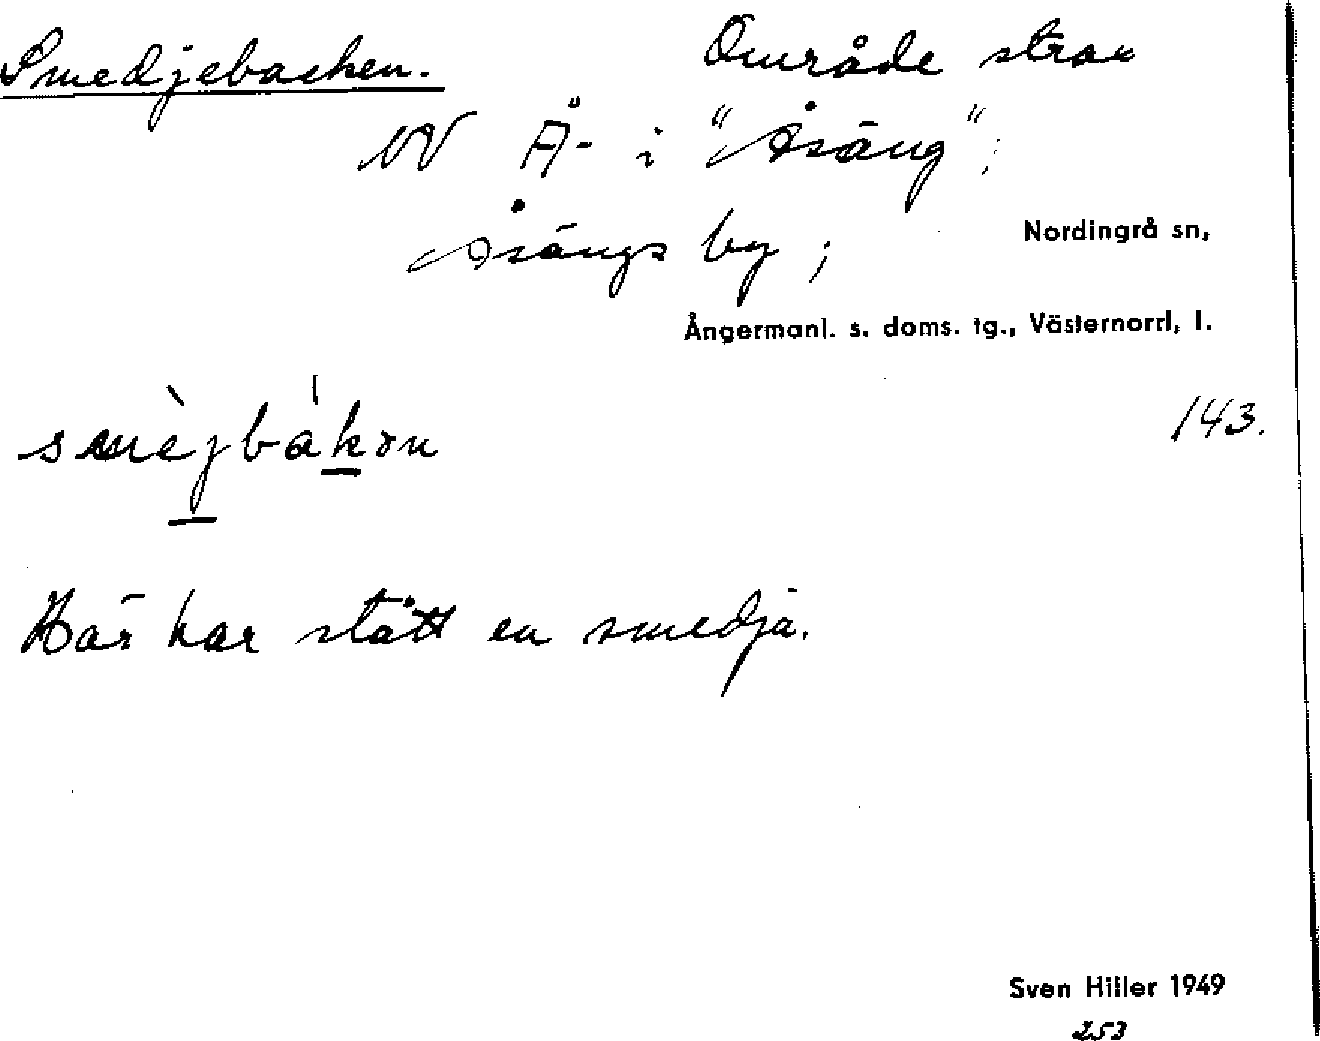 Smedjebacken. Område strax
NV Å- i "Åsäng";
Åsängs by;
Nordingrå sn,
Ångermanl. s. doms. tg., Västernorrl, l.
143.
smèjbákǝn
Här har stått en smedja.
Sven Hiller 1949
253